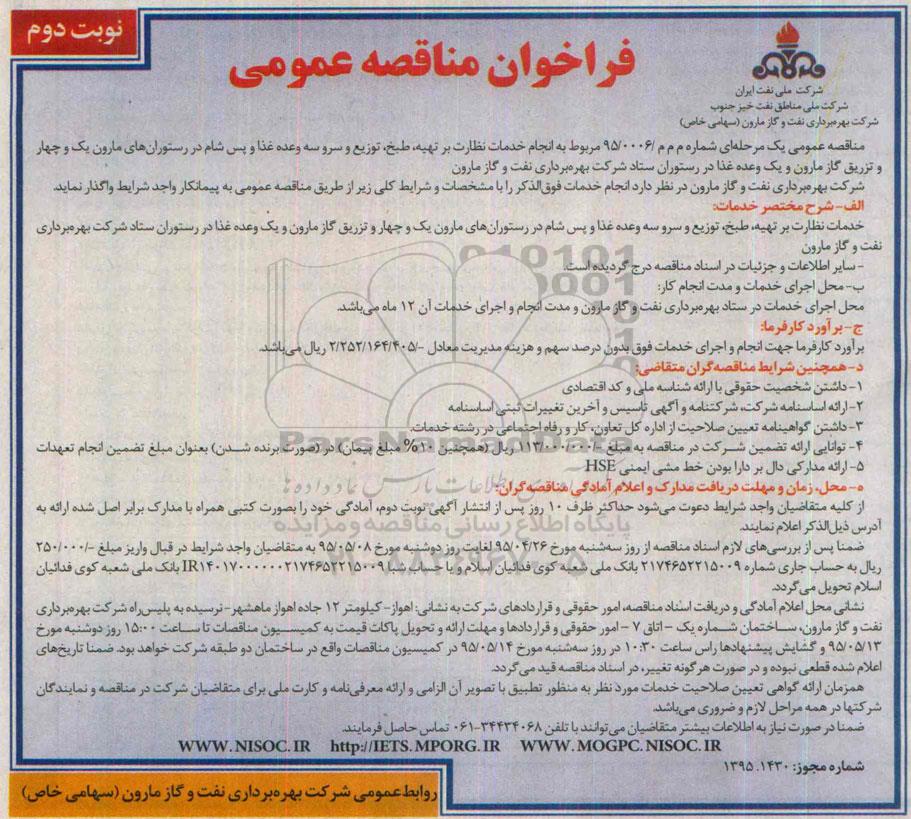 نوبت دوم
فراخوان مناقصه عمومی
شرکت ملی نفت ایران
شرکت ملی مناطق نفت خیز جنوب
شرکت بهره‌برداری نفت و گاز مارون (سهامی خاص)
مناقصه عمومی یک مرحله‌ای شماره م م م /۹۵/۰۰۰۶ مربوط به انجام خدمات نظارت بر تهیه، طبخ، توزیع و سرو سه وعده غذا و پس شام در رستوران‌های مارون یک و چهار
و تزریق گاز مارون و یک وعده غذا در رستوران ستاد شرکت بهره‌برداری نفت و گاز مارون
شرکت بهره‌برداری نفت و گاز مارون در نظر دارد انجام خدمات فوق‌الذکر را با مشخصات و شرایط کلی زیر از طریق مناقصه عمومی به پیمانکار واجد شرایط واگذار نماید.
الف- شرح مختصر خدمات:
خدمات نظارت بر تهیه، طبخ، توزیع و سرو سه وعده غذا و پس شام در رستوران‌های مارون یک و چهار و تزریق گاز مارون و یک وعده غذا در رستوران ستاد شرکت بهره‌برداری
نفت و گاز مارون
- سایر اطلاعات و جزئیات در اسناد مناقصه درج گردیده است.
ب- محل اجرای خدمات و مدت انجام کار:
محل اجرای خدمات در ستاد بهره‌برداری نفت و گاز مارون و مدت انجام و اجرای خدمات آن ۱۲ ماه می‌باشد.
ج- برآورد کارفرما:
برآورد کارفرما جهت انجام و اجرای خدمات فوق بدون درصد سهم و هزینه مدیریت معادل -/۲/۲۵۲/۱۶۴/۴۰۵ ریال می‌باشد.
د- همچنین شرایط مناقصه‌گران متقاضی:
۱- داشتن شخصیت حقوقی با ارائه شناسه ملی و کد اقتصادی
۲- ارائه اساسنامه شرکت، شرکتنامه و آگهی تاسیس و آخرین تغییرات ثبتی اساسنامه
۳- داشتن گواهینامه تعیین صلاحیت از اداره کل تعاون، کار و رفاه اجتماعی در رشته خدمات.
۴- توانایی ارائه تضمین شرکت در مناقصه به مبلغ -/۱۱۳/۰۰۰/۰۰۰ ریال (همچنین ۱۰% مبلغ پیمان) در (صورت برنده شدن) بعنوان مبلغ تضمین انجام تعهدات
۵- ارائه مدارکی دال بر دارا بودن خط مشی ایمنی HSE
ه- محل، زمان و مهلت دریافت مدارک و اعلام آمادگی مناقصه‌گران:
از کلیه متقاضیان واجد شرایط دعوت می‌شود حداکثر ظرف ۱۰ روز پس از انتشار آگهی نوبت دوم، آمادگی خود را بصورت کتبی همراه با مدارک برابر اصل شده ارائه به
آدرس ذیل‌الذکر اعلام نمایند.
ضمنا پس از بررسی‌های لازم اسناد مناقصه از روز سه‌شنبه مورخ ۹۵/۰۴/۲۶ لغایت روز دوشنبه مورخ ۹۵/۰۵/۰۸ به متقاضیان واجد شرایط در قبال واریز مبلغ -/۲۵۰/۰۰۰
ریال به حساب جاری شماره ۲۱۷۴۶۵۲۲۱۵۰۰۹ بانک ملی شعبه کوی فدائیان اسلام و یا حساب شبا IR۱۴۰۱۷۰۰۰۰۰۰۲۱۷۴۶۵۲۲۱۵۰۰۹ بانک ملی شعبه کوی فدائیان
اسلام تحویل می‌گردد.
نشانی محل اعلام آمادگی و دریافت اسناد مناقصه، امور حقوقی و قراردادهای شرکت به نشانی: اهواز- کیلومتر ۱۲ جاده اهواز ماهشهر- نرسیده به پلیس‌راه شرکت بهره‌برداری
نفت و گاز مارون، ساختمان شماره یک - اتاق ۷ - امور حقوقی و قراردادها و مهلت ارائه و تحویل پاکات قیمت به کمیسیون مناقصات تا ساعت ۱۵:۰۰ روز دوشنبه مورخ
۹۵/۰۵/۱۳ و گشایش پیشنهادها راس ساعت ۱۰:۳۰ در روز سه‌شنبه مورخ ۹۵/۰۵/۱۴ در کمیسیون مناقصات واقع در ساختمان دو طبقه شرکت خواهد بود. ضمنا تاریخ‌های
اعلام شده قطعی نبوده و در صورت هرگونه تغییر، در اسناد مناقصه قید می‌گردد.
همزمان ارائه گواهی تعیین صلاحیت خدمات مورد نظر به منظور تطبیق با تصویر آن الزامی و ارائه معرفی‌نامه و کارت ملی برای متقاضیان شرکت در مناقصه و نمایندگان
شرکتها در همه مراحل لازم و ضروری می‌باشد.
ضمنا در صورت نیاز به اطلاعات بیشتر متقاضیان می‌توانند با تلفن ۳۴۴۳۴۰۶۸-۰۶۱ تماس حاصل فرمایند.
WWW.NISOC.IR http://IETS.MPORG.IR WWW.MOGPC.NISOC.IR
شماره مجوز: ۱۴۳۰. ۱۳۹۵
روابط عمومی شرکت بهره‌برداری نفت و گاز مارون (سهامی خاص)
ParsNamadData
پایگاه اطلاع رسانی مناقصه و مزایده